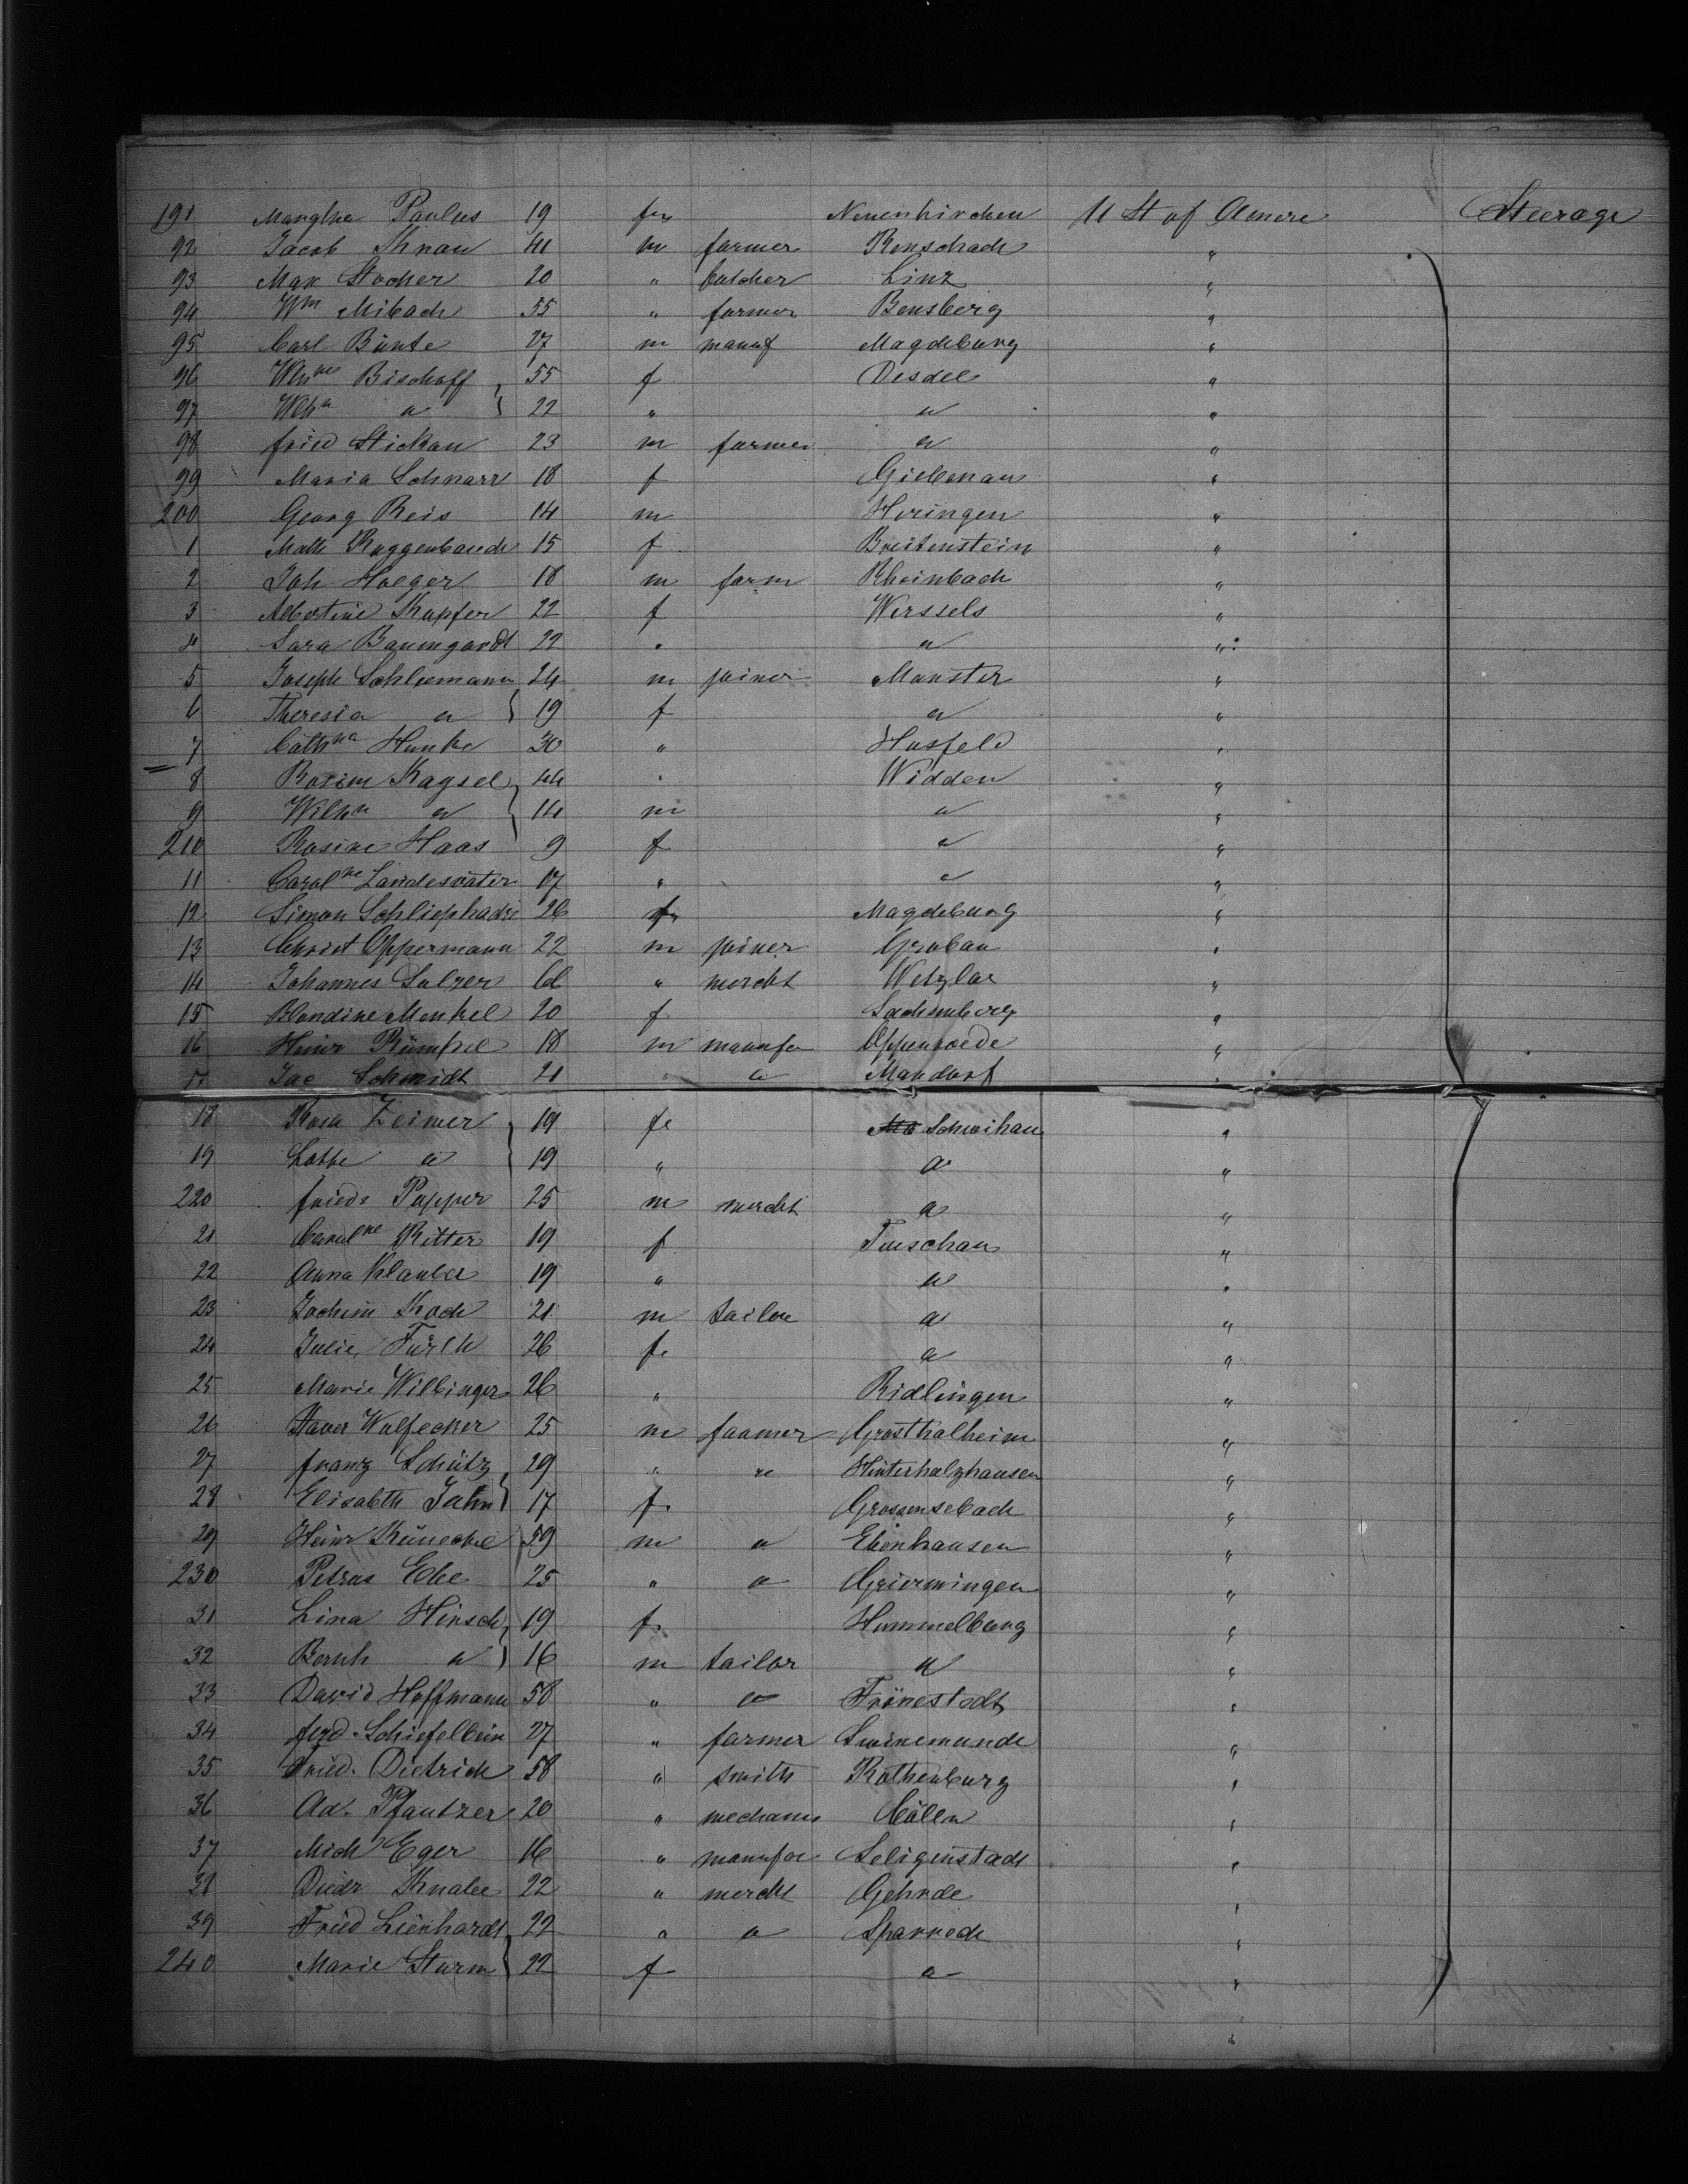 191 Margthe Paulus 19 fe Neuenkirchen U St of Amere Steerage
92 Jacob Knau 41 m farmer Renschach "
93 Max Stocher 20 " butcher Linz "
94 Wm Mibach 55 " farmer Bensberg "
95 Carl Bünte 27 m manuf Magdeburg "
96 Whne Bischoff 55 f Desdel "
97 Wlhn " 22 " " "
98 fried Stickau 23 m farmer " "
99 Maria Schnarr 18 f Giebenau "
200 Georg Reis 14 m Heringen "
1 Math Roggenbauch 15 f Breitenstein "
2 Joh Hoeger 18 m farm Rheinbach "
3 Albertine Kupfer 22 f Werssels "
4 Sara Baumgardt 22 " " "
5 Joseph Schliemann 24 m joiner Munster "
6 Theresia " 19 f " "
7 Cathna Hunke 30 " Hosfeld "
8 Rosine Kagsel 44 " Widden "
9 Wilhn " 14 m " "
210 Rosine Haas 9 f " "
11 Carolne Landesvater 17 " " "
12 Simon Schliephacke 26 f Magdeburg "
13 Christ Oppermann 22 m joiner Grabau "
14 Johannes Sulzer 66 " mercht Wetzlar "
15 Blandine Menkel 20 f Sachsenberg "
16 Heinr Rümpel 18 m manufa Oppenwede "
17 Jac Schmidt 21 " Mandorf "
18 Rosa Zeimer 19 fe Schwihau "
19 Lotte " 19 " " "
220 friedr Popper 25 m mercht " "
21 Carolne Ritter 19 f Tuschau "
22 Anna Klauber 19 " " "
23 Jochim Koch 21 m tailor " "
24 Julie Fürth 26 f " "
25 Marie Willinger 26 " Ridlingen "
26 Xaver Wolfecker 25 m faamer Grosthalheim "
27 franz Schütz 29 " " Hinterholzhausen "
28 Elisabth Jahn 17 f Grossensebach "
29 Heinr Künecke 59 m " Ebenhausen "
230 Petrus Ebe 25 " " Griermingen "
31 Lina Hirsch 19 f Hummelburg "
32 Bernh " 16 m tailor " "
33 David Hoffmann 58 " " Trönestedt "
34 ferd. Schiefelbein 27 " farmer Swinemunde "
35 Fried. Dietrich 58 " smith Rothenburg "
36 Ad. Pfautzer 20 " mechanic Cöllen "
37 Mich Eger 16 " manufac Seligenstadt "
38 Diedr Knabe 22 " mercht Gehrde "
39 Fried Lienhardt 22 " " Sparrode "
240 Marie Sturm 22 f " "
"